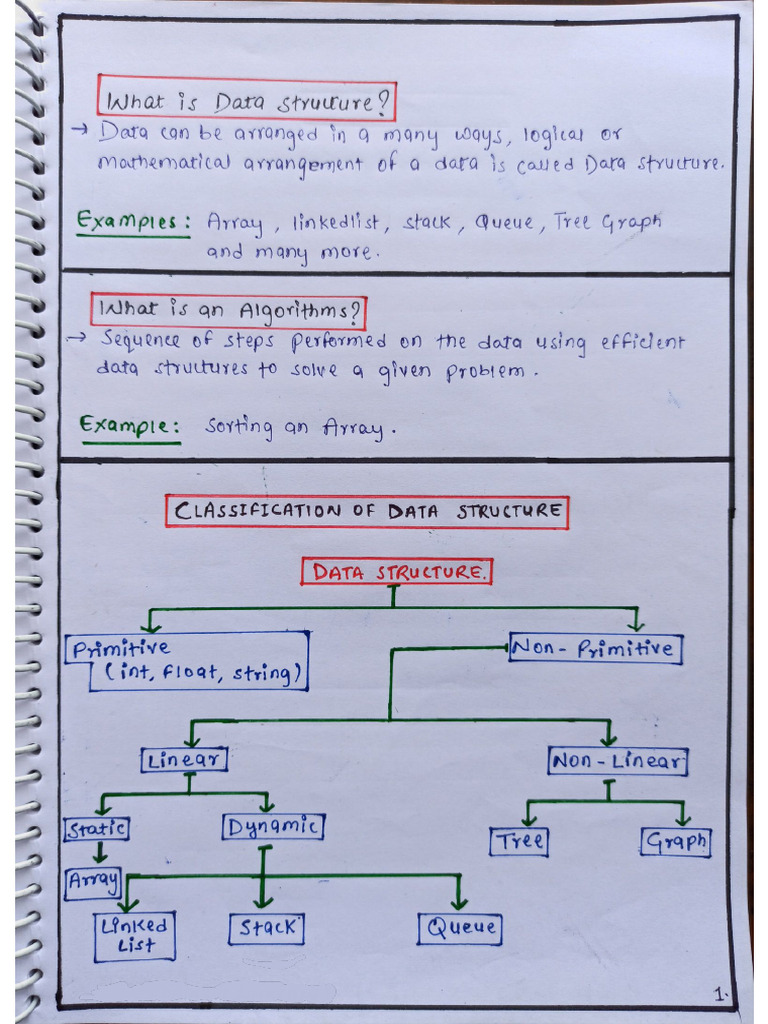 What is Data structure?
→ Data can be arranged in a many ways, logical or
mathematical arrangement of a data is called Data structure.
Examples: Array, linkedlist, stack, Queue, Tree Graph
and many more.
What is an Algorithms?
→ Sequence of steps performed on the data using efficient
data structures to solve a given problem.
Example: Sorting an Array.
CLASSIFICATION OF DATA STRUCTURE
DATA STRUCTURE.
Primitive
(int, float, string)
Non-Primitive
Linear
Non-Linear
Static
Dynamic
Tree
Graph
Array
Linked
List
Stack
Queue
1.